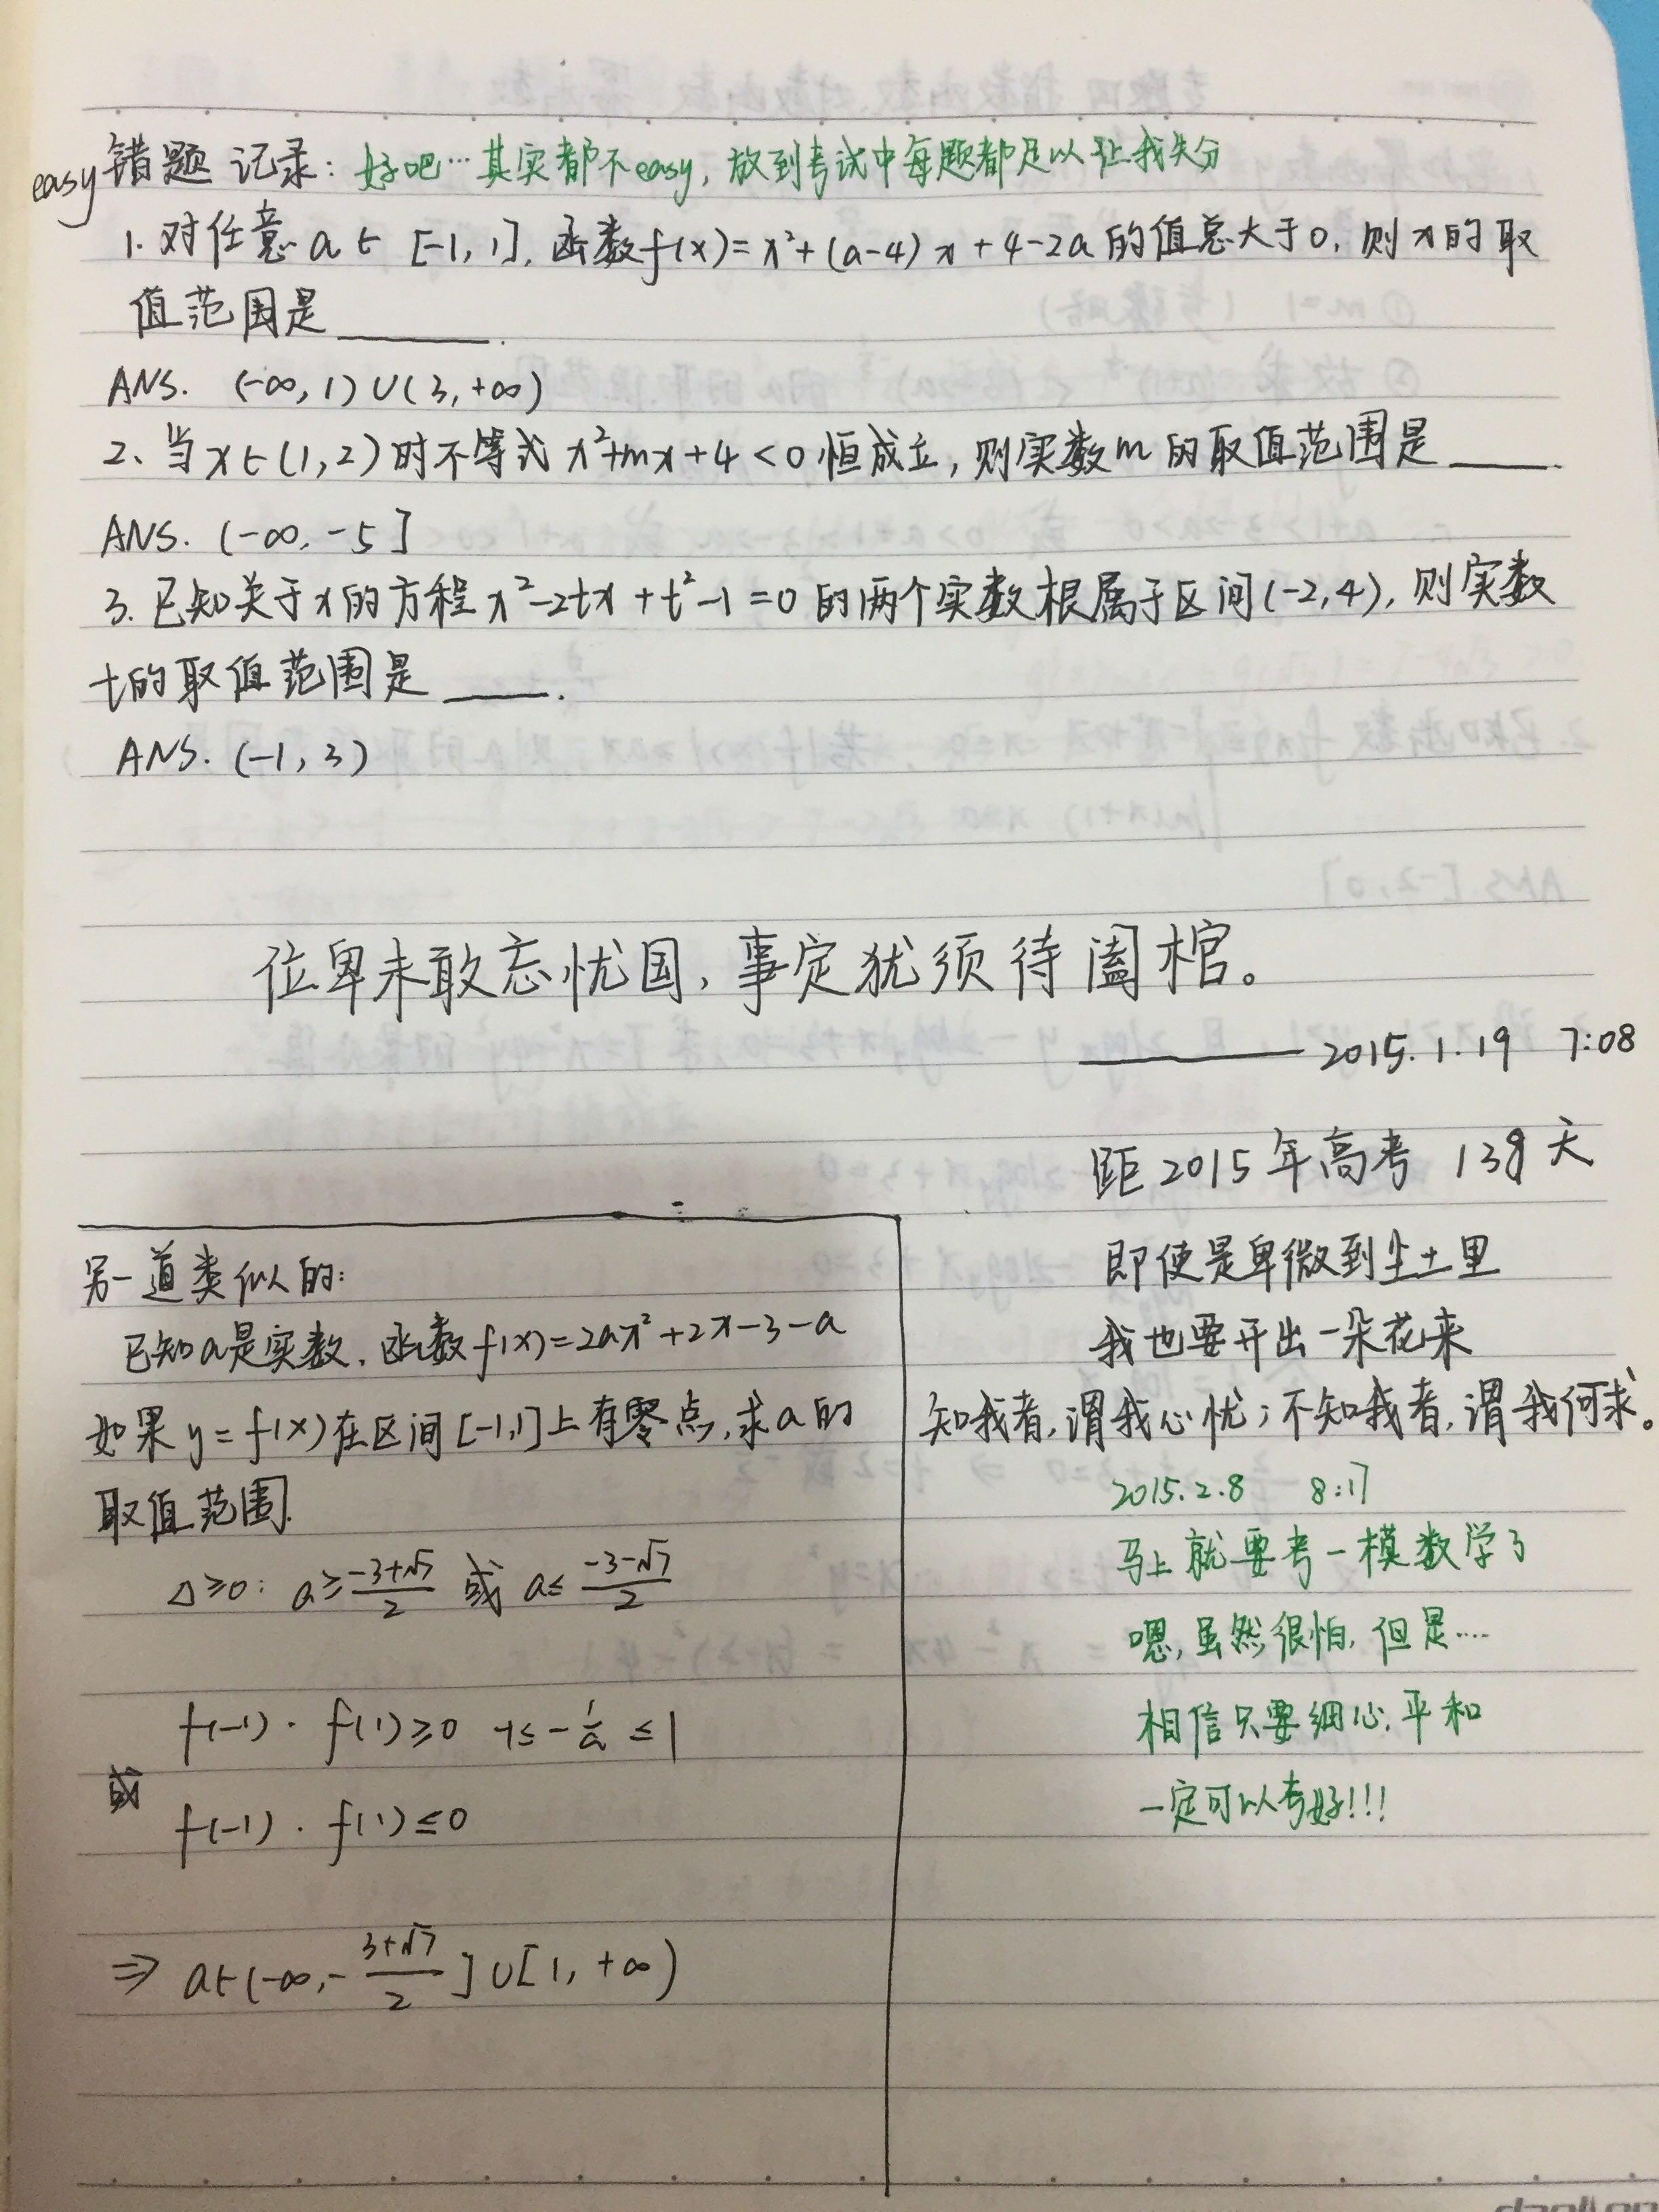 easy错题 记录：好吧…其实都不easy，放到考试中每题都足以让我失分
1. 对任意 a∈ [-1, 1]，函数f(x)=x²+(a-4)x+4-2a的值总大于0，则x的取
值范围是______.
ANS. (-∞, 1)∪(3, +∞)
2、当x∈(1, 2)时不等式 x²+mx+4<0恒成立，则实数m的取值范围是____.
ANS. (-∞, -5]
3. 已知关于x的方程 x²-2tx+t²-1=0的两个实数根属于区间(-2,4)，则实数
t的取值范围是____.
ANS. (-1, 3)
位卑未敢忘忧国，事定犹须待阖棺。
————2015. 1. 19 7:08
距2015年高考 138天
即使是卑微到尘土里
我也要开出一朵花来
知我者，谓我心忧；不知我者，谓我何求。
2015.2.8 8:17
马上就要考一模数学了
嗯，虽然很怕，但是....
相信只要细心，平和
一定可以考好!!!
另一道类似的：
已知a是实数，函数f(x)=2ax²+2x-3-a
如果y=f(x)在区间[-1,1]上有零点，求a的
取值范围.
△≥0： a≥(-3+√7)/2 或 a≤(-3-√7)/2
f(-1) · f(1)≥0 -1≤-1/a≤1
或
f(-1) · f(1)≤0
⇒ a∈(-∞,-(3+√7)/2]∪[1, +∞)